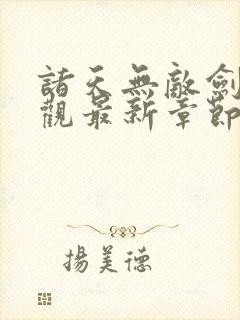 諸天無敵劍
觀最新章節
揚美德